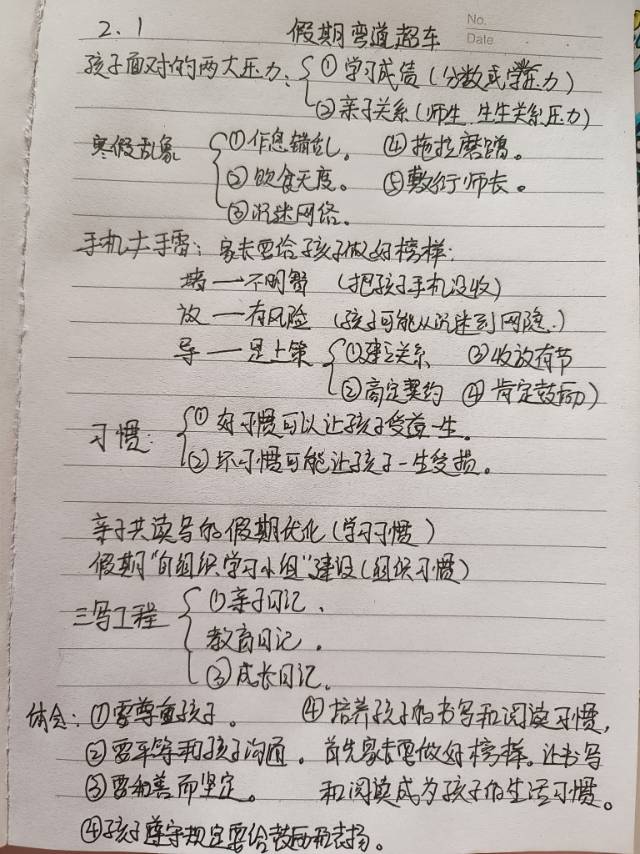 No.
Date
2.1 假期弯道超车
孩子面对的两大压力:①学习成绩(分数或学压力)
②亲子关系(师生、生生关系压力)
寒假乱象 ①作息错乱。 ④拖拉磨蹭。
②饮食无度。 ⑤敷衍师长。
③沉迷网络。
手机大手雷:家长要给孩子做好榜样:
堵一不明智 (把孩子手机没收)
放一有风险 (孩子可能从沉迷到网隐.)
导一是上策 ①建立关系 ③收放有节
②商定契约 ④肯定鼓励)
习惯: ①好习惯可以让孩子受益一生。
②坏习惯可能让孩子一生受损。
亲子共读写的假期优化(学习习惯)
假期“自组织学习小组”建设(组织习惯)
三写工程 ①亲子日记、
教育日记.
③成长日记.
体会:①要尊重孩子. ④培养孩子的书写和阅读习惯,
②要平等和孩子沟通. 首先家长要做好榜样。让书写
③要和善而坚定。 和阅读成为孩子的生活习惯。
④孩子遵守规定要给鼓励和表扬。